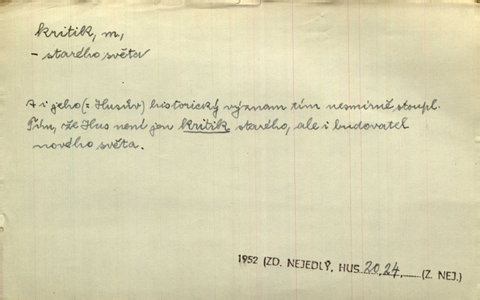 kritik, m,
- starého světa
A i jeho (= Husův) historický význam tím nesmírně stoupl.
Tím, že Hus není jen kritik starého, ale i budovatel
nového světa.
1952 (ZD. NEJEDLÝ, HUS 20, 24, (Z. NEJ.)